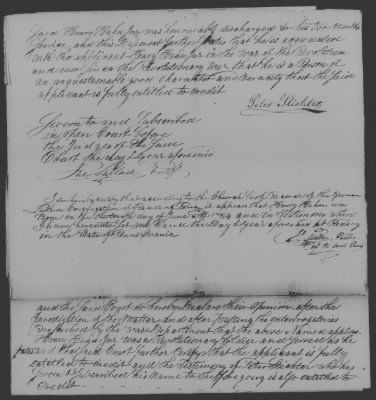 Said Henry Hahn Jur was honorably discharged for his two months
Service, and this Deponent further states that he is acquainted
with the applicant Henry Hahn Jur in the War of the Revolution
and ever since the Revolutionary War that he is a person of
an unquestionable good character and veracity that the said
applicant is fully entitled to credit
Peter Stichler
Sworn to and Subscribed
in open Court before
the Judges of the said
Court the day & year aforesaid
I do hereby certify that according to the Church Book Record of the German
Lutheran Congregation of Reading Town, it appears that Henry Hahn was
Born on the day of June AD 1754 and in Testimony whereof
I have hereunto Set my Hand the Day & year aforesaid at Reading
in the State of Pennsylvania
Miller, Pastor
of the Said Church
and the Said Court do hereby Declare their Opinion, after the
Investigation of the Matter, and after Putting the interrogatories
Prescribed by the War Department that the above Named applicant
Henry Hahn Jur was a Revolutionary Soldier and Served as he
states and the Said Court further Certify that the applicant is fully
entitled to credit and the Testimony of Peter Stichler who has
Sworn & Subscribed his Name to the foregoing is also entitled to
Credit